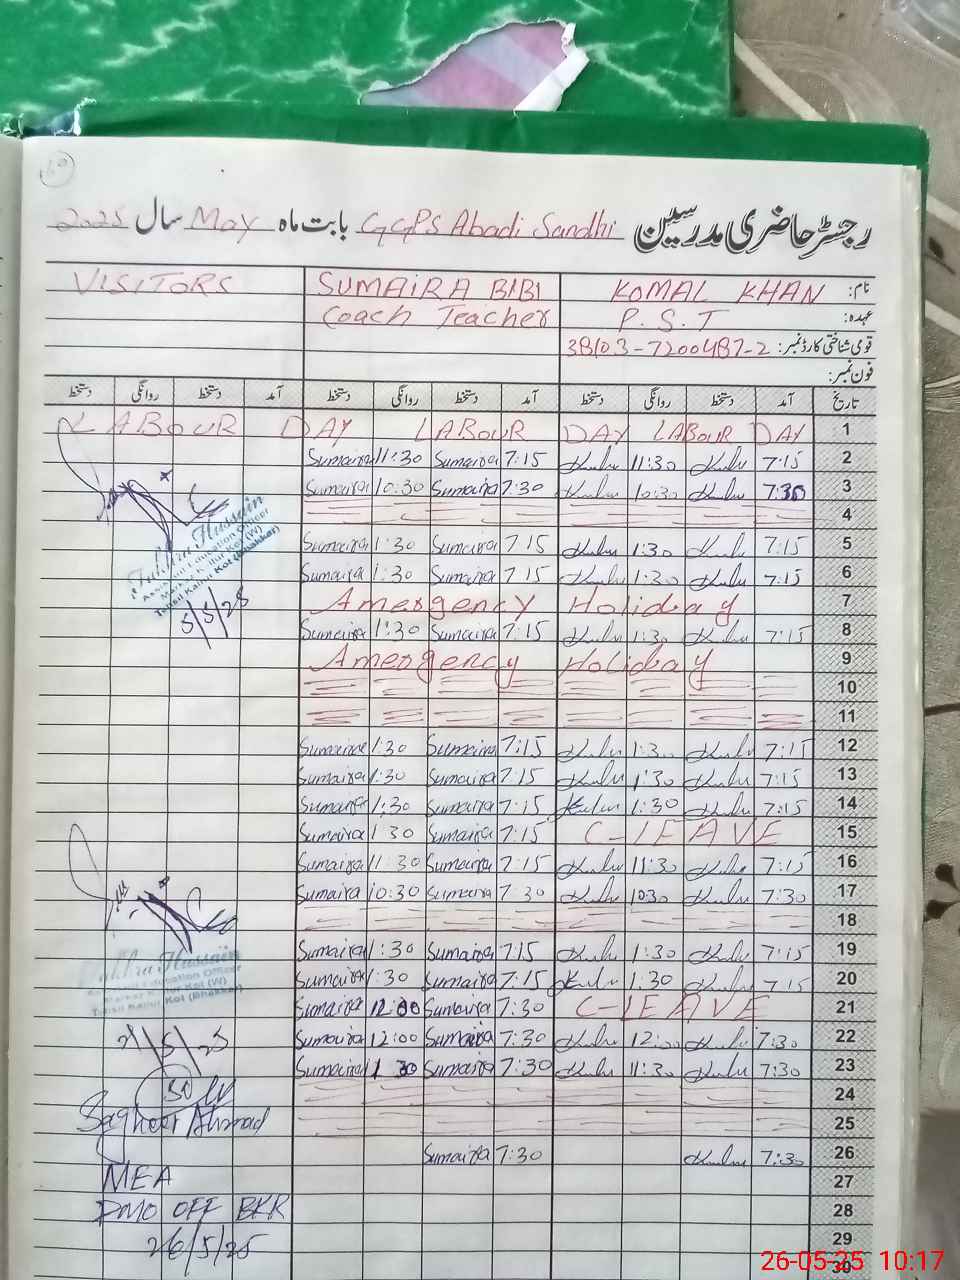 رجسٹر حاضری مدرسین GGPS Abadi Sandhi بابت ماہ May سال 2025
نام: KOMAL KHAN SUMAIRA BIBI VISITORS
عہدہ: P.S.T Coach Teacher
قومی شناختی کارڈ نمبر: 38103-7200487-2
فون نمبر:
تاریخ آمد دستخط روانگی دستخط آمد دستخط روانگی دستخط آمد دستخط روانگی دستخط
LABOUR DAY LABOUR DAY LABOUR DAY 1
Sumaira 11:30 Sumaira 7:15 11:30 7:15 2
Sumaira 10:30 Sumaira 7:30 10:30 7:30 3
4
Sumaira 1:30 Sumaira 7:15 1:30 7:15 5
Sumaira 1:30 Sumaira 7:15 1:30 7:15 6
Amergency Holiday 7
Sumaira 1:30 Sumaira 7:15 1:30 7:15 8
Amergency Holiday 9
10
11
Sumaira 1:30 Sumaira 7:15 1:30 7:15 12
Sumaira 1:30 Sumaira 7:15 1:30 7:15 13
Sumaira 1:30 Sumaira 7:15 1:30 7:15 14
Sumaira 1:30 Sumaira 7:15 C-LEAVE 15
Sumaira 11:30 Sumaira 7:15 11:30 7:15 16
Sumaira 10:30 Sumaira 7:30 10:30 7:30 17
18
Sumaira 1:30 Sumaira 7:15 1:30 7:15 19
Sumaira 1:30 Sumaira 7:15 1:30 7:15 20
Sumaira 12:00 Sumaira 7:30 C-LEAVE 21
Sumaira 12:00 Sumaira 7:30 12:00 7:30 22
Sumaira 11:30 Sumaira 7:30 11:30 7:30 23
24
25
Sumaira 7:30 7:30 26
27
28
29
30
Hussain
Education Officer
Kallur Kot (Bhakkar)
5/5/25
Hussain
Education Officer
Kallur Kot (Bhakkar)
21/5/25
Sagheer Ahmad
MEA
DMO OFF BKR
26/5/25
26-05-25 10:17